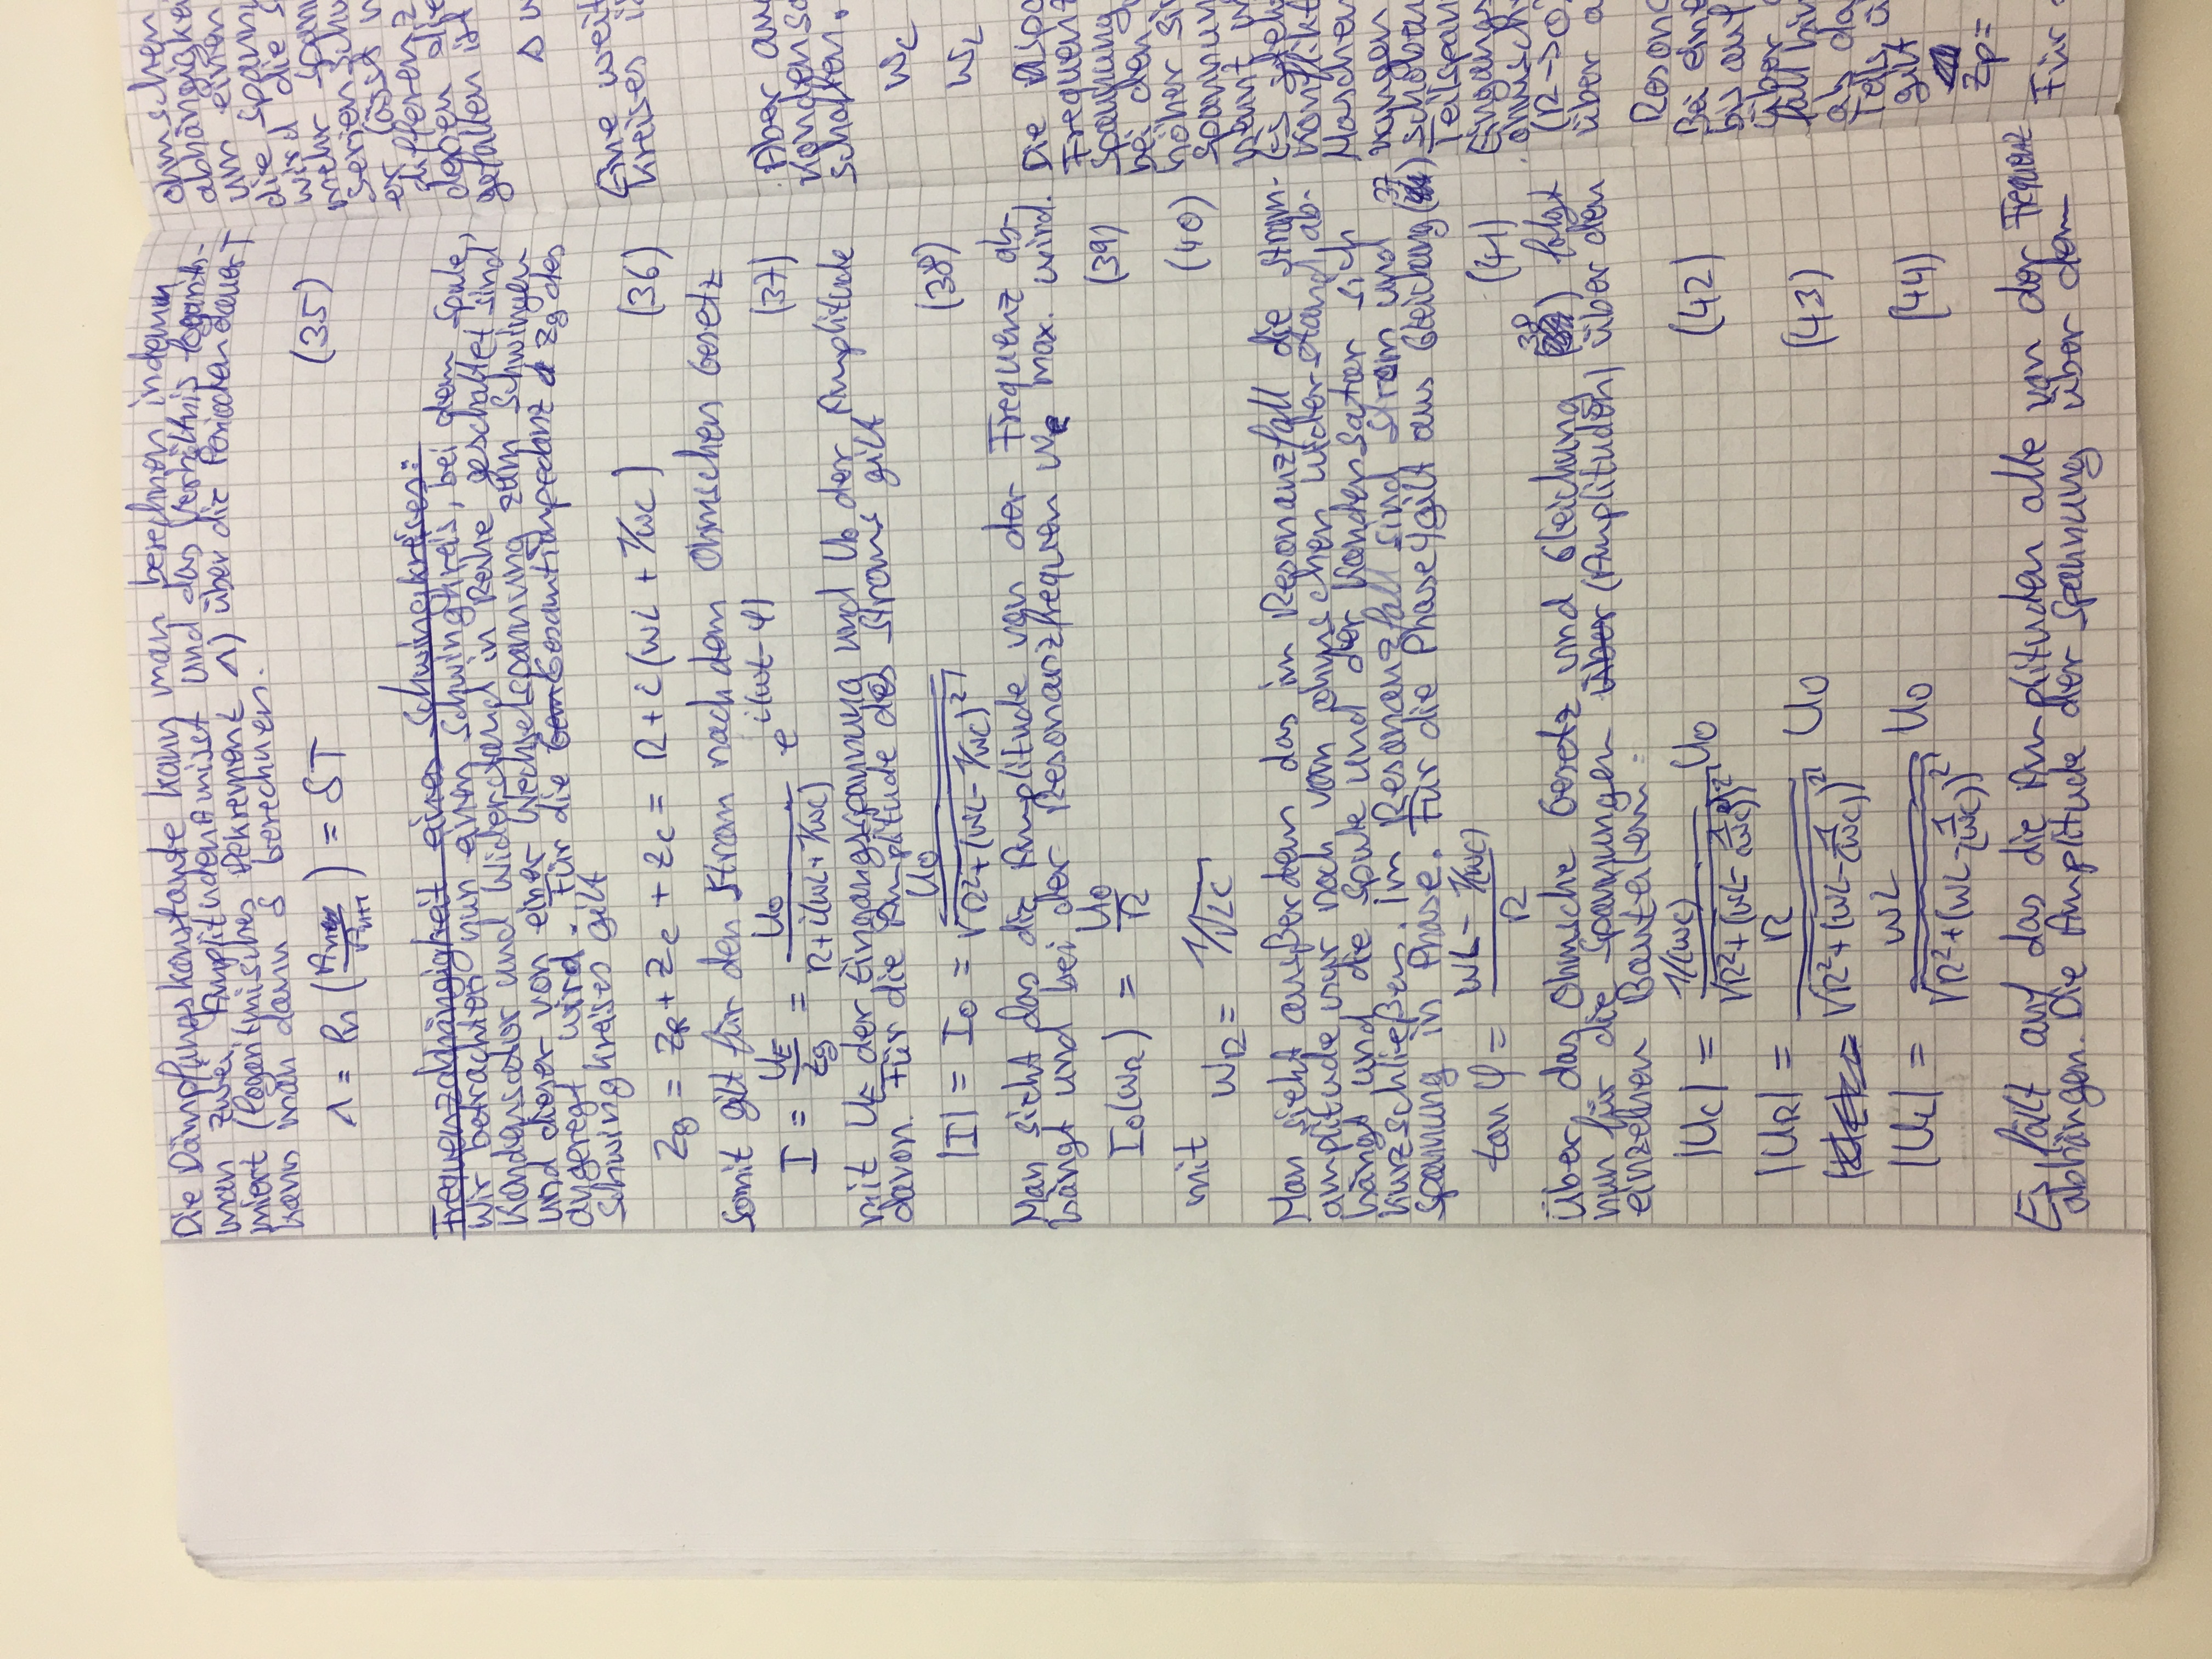 Die Dämpfungskonstante kann man berechnen indem
man zwei Amplituden A misst und das Verhältnis logarith-
miert (logaritmisches Dekrement Λ) über die Periodendauer T
kann man dann δ berechnen.
Λ = ln (An / An+1) = δT (35)
Frequenzabhängigkeit eines Schwingkreises:
Wir betrachten nun einen Schwingkreis, bei dem Spule,
Kondensator und Widerstand in Reihe geschaltet sind
und dieser von einer Wechselspannung zum Schwingen
angeregt wird. Für die Gesamtimpedanz Zg des
Schwingkreises gilt
Zg = ZR + ZC + ZC = R + i(ωL + 1/ωC) (36)
Somit gilt für den Strom nach dem Ohmschen Gesetz
I = UE/Zg = U0 / (R+i(ωL+1/ωC)) e^i(ωt-φ) (37)
mit UE der Eingangsspannung und U0 der Amplitude
davon. Für die Amplitude des Stroms gilt
|I| = I0 = U0 / √(R²+(ωL-1/ωC)²) (38)
Man sieht das die Amplitude von der Frequenz ab-
hängt und bei der Resonanzfrequen ωR max. wird.
I0(ωR) = U0/R (39)
mit
ωR = 1/√LC (40)
Man sieht außerdem das im Resonanzfall die Strom-
amplitude nur noch vom ohmschen Widerstand ab-
hängt und die Spule und der Kondensator sich
kurzschließen. Im Resonanzfall sind Strom und
Spannung in Phase. Für die Phase φ gilt aus Gleichung (37)
tan φ = (ωL - 1/(ωC)) / R (41)
Über das Ohmsche Gesetz und Gleichung (38) folgt
nun für die Spannungen (Amplituden) über den
einzelnen Bauteilen:
|UC| = 1/(ωC) / √(R²+(ωL-1/(ωC))²) U0 (42)
|UR| = R / √(R²+(ωL-1/(ωC))²) U0 (43)
|UL| = ωL / √(R²+(ωL-1/(ωC))²) U0 (44)
Es fällt auf das die Amplituden alle von der Frequenz
abhängen. Die Amplitude der Spannung über dem
ohmschen
um einen
die Spann
wird die S
mehr Span
er lässt
differenz
gefallen ist
Δω
Eine weit
kreises
Aber au
Kondensa
schalten.
ωC
ωL
Die
Frequenz
Spannung
bei den
höher si
Spannun
Konflikt
Maschen
schoben
Teilspan
Eingangs
ohmsch
(R→0)
über a
Resona
Bei eine
bis auf
über
fall
ab da
Teils ü
gilt
Zp=
Für